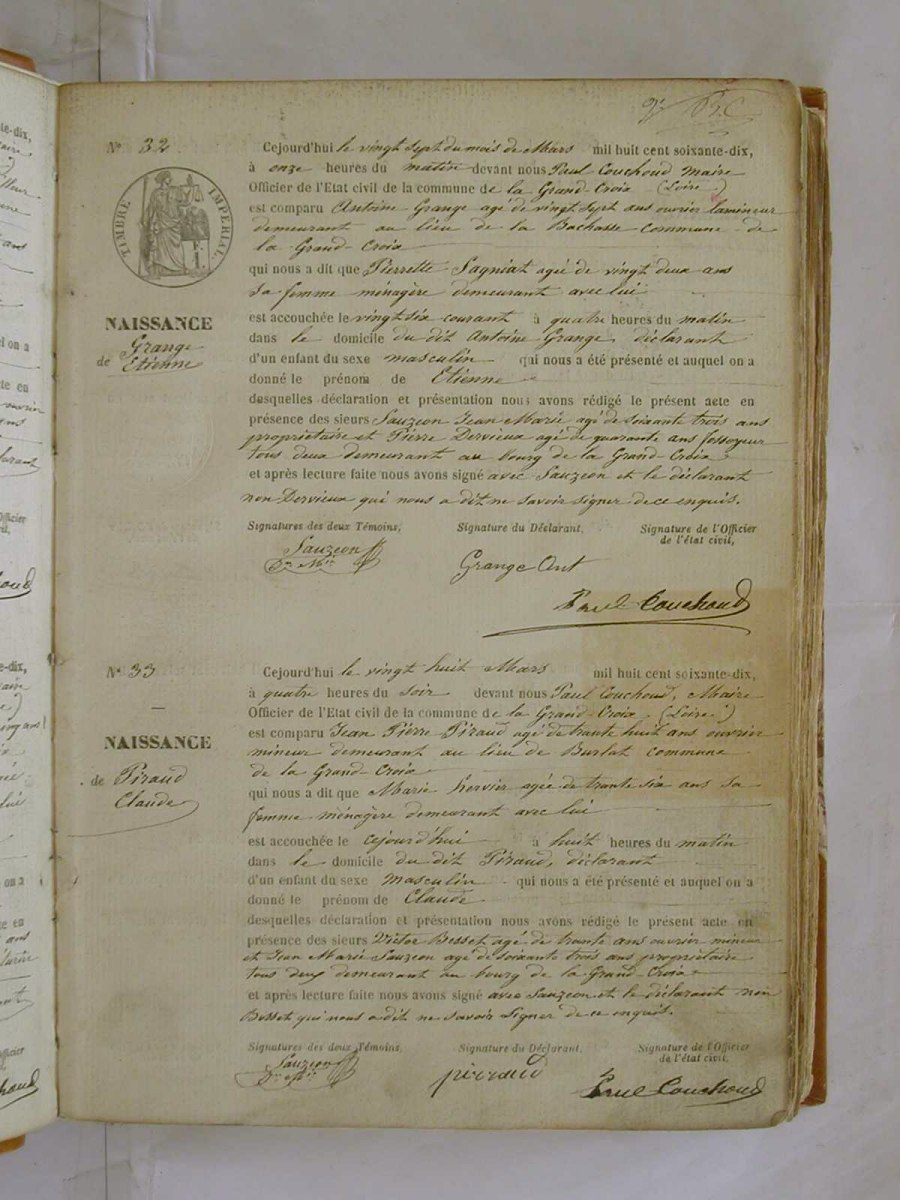 Nº 32
TIMBRE IMPERIAL
F.
1.
NAISSANCE
de Grange
Etienne
Cejourd'hui le vingt sept du mois de Mars mil huit cent soixante-dix,
à onze heures du matin devant nous Paul Couchoud maire
Officier de l'Etat civil de la commune de la Grand Croix (Loire)
est comparu Antoine Grange agé de vingt sept ans ouvrier lamineur
demeurant au lieu de la Bachasse commune de
la Grand-Croix
qui nous a dit que Pierrette Sagniat agée de vingt deux ans
sa femme ménagère demeurant avec lui
est accouchée le vingt six courant à quatre heures du matin
dans le domicile du dit Antoine Grange, déclarant
d'un enfant du sexe masculin qui nous a été présenté et auquel on a
donné le prénom de Etienne
desquelles déclaration et présentation nous avons rédigé le présent acte en
présence des sieurs Sauzeon Jean Marie agé de soixante trois ans
propriétaire et Pierre Dervieux agé de quarante ans fossoyeur
tous deux demeurant au bourg de la Grand-Croix
et après lecture faite nous avons signé avec Sauzeon et le déclarant
non Dervieux qui nous a dit ne savoir signer de ce enquis.
Signatures des deux Témoins, Signature du Déclarant, Signature de l'Officier
de l'état civil,
Sauzeon
Jn Mie
Grange Ant
Paul Couchoud
Nº 33
NAISSANCE
de Piraud
Claude
Cejourd'hui le vingt huit Mars mil huit cent soixante-dix,
à quatre heures du soir devant nous Paul Couchoud, Maire
Officier de l'Etat civil de la commune de la Grand-Croix (Loire)
est comparu Jean Pierre Piraud agé de trente huit ans ouvrier
mineur demeurant au lieu de Burlat commune
de la Grand-Croix
qui nous a dit que Marie Hervier agée de trante six ans sa
femme ménagère demeurant avec lui
est accouchée le cejourd'hui à huit heures du matin
dans le domicile du dit Piraud, déclarant
d'un enfant du sexe masculin qui nous a été présenté et auquel on a
donné le prénom de Claude
desquelles déclaration et présentation nous avons rédigé le présent acte en
présence des sieurs Victor Besset agé de trante ans ouvrier mineur
et Jean Marie Sauzeon agé de soixante trois ans propriétaire
tous deux demeurant au bourg de la Grand-Croix
et après lecture faite nous avons signé avec Sauzeon et le déclarant non
Besset qui nous a dit ne savoir signer de ce enquis.
Signatures des deux Témoins, Signature du Déclarant, Signature de l'Officier
de l'état civil,
Sauzeon
Jn Mie
pirraud
Paul Couchoud